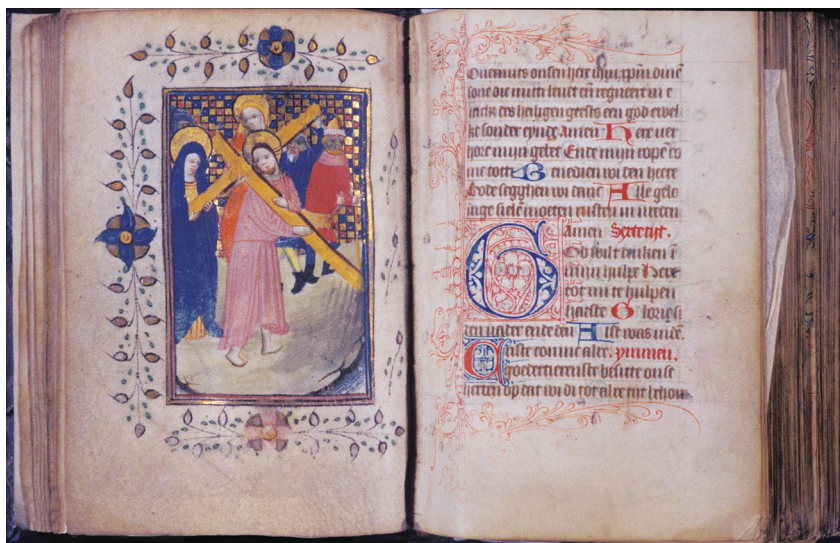 Ouermits onsen here ihm xpm dinē
sone die mitti leuet eñ regneert in e
des heiligen geests een god ewel
ke sonder eynde Amen Here ver
hore mijn gebet Ende mijn ropē co
me totti Benedien wi den here
Gode segghen wi danc Alle gelo
uige sielē moeten rusten in vreden
Amen Sexte tijt.
God wilt denken ī
mijn hulpe Here
tot mi te hulpen
haeste Glorie si
den vader ende den Alst was inde.
comme alre. ymmen.
goedertierenste besitte onse
herten op dat wi di tot alre tijt behou